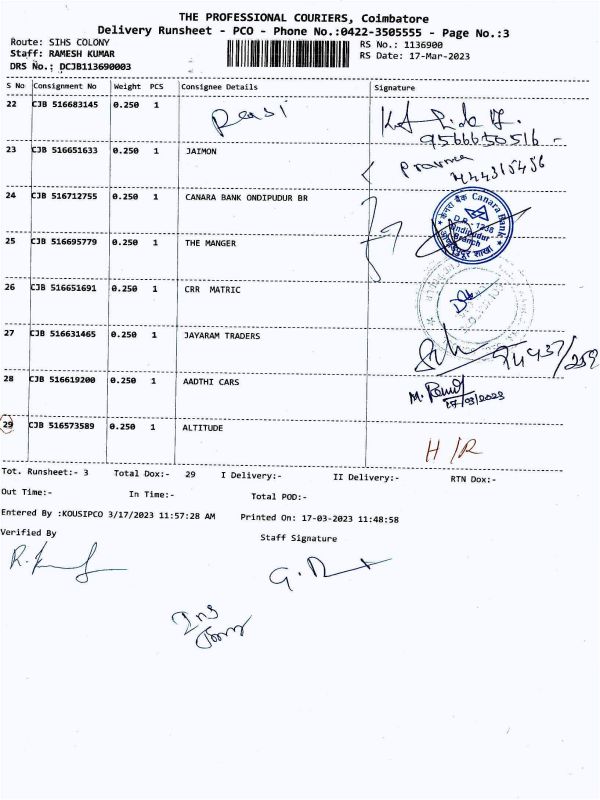 THE PROFESSIONAL COURIERS, Coimbatore
Delivery Runsheet - PCO - Phone No.:0422-3505555 - Page No.:3
Route: SIHS COLONY RS No.: 1136900
Staff: RAMESH KUMAR RS Date: 17-Mar-2023
DRS No.: DCJB113690003
S No Consignment No Weight PCS Consignee Details Signature
22 CJB 516683145 0.250 1
9566650516
23 CJB 516651633 0.250 1 JAIMON
24 CJB 516712755 0.250 1 CANARA BANK ONDIPUDUR BR
केनरा बैंक Canara Bank
Ondipudur
Branch
शाखा
25 CJB 516695779 0.250 1 THE MANGER
26 CJB 516651691 0.250 1 CRR MATRIC
27 CJB 516631465 0.250 1 JAYARAM TRADERS
28 CJB 516619200 0.250 1 AADTHI CARS
17/03/2023
29 CJB 516573589 0.250 1 ALTITUDE
H/R
Tot. Runsheet:- 3 Total Dox:- 29 I Delivery:- II Delivery:- RTN Dox:-
Out Time:- In Time:- Total POD:-
Entered By :KOUSIPCO 3/17/2023 11:57:28 AM Printed On: 17-03-2023 11:48:58
Verified By Staff Signature